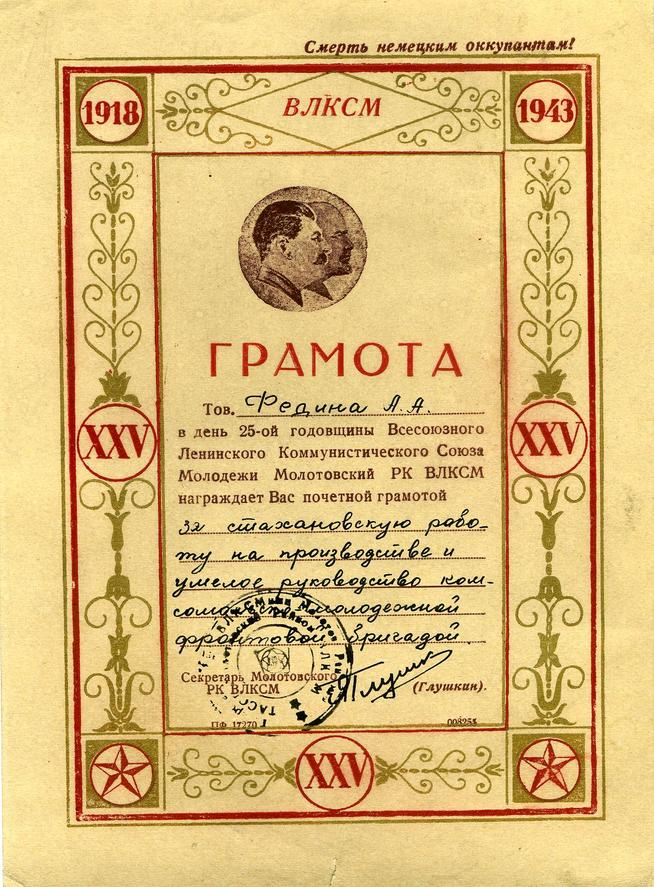 Смерть немецким оккупантам!
1918 ВЛКСМ 1943
ГРАМОТА
Тов. Федина А.А.
в день 25-ой годовщины Всесоюзного
Ленинского Коммунистического Союза
Молодежи Молотовский РК ВЛКСМ
награждает Вас почетной грамотой
XXV XXV
за стахановскую рабо-
ту на производстве и
умелое руководство ком-
сомольско молодежной
фронтовой бригадой
Секретарь Молотовского
РК ВЛКСМ
Глушкин (Глушкин).
ПФ 17270
XXV